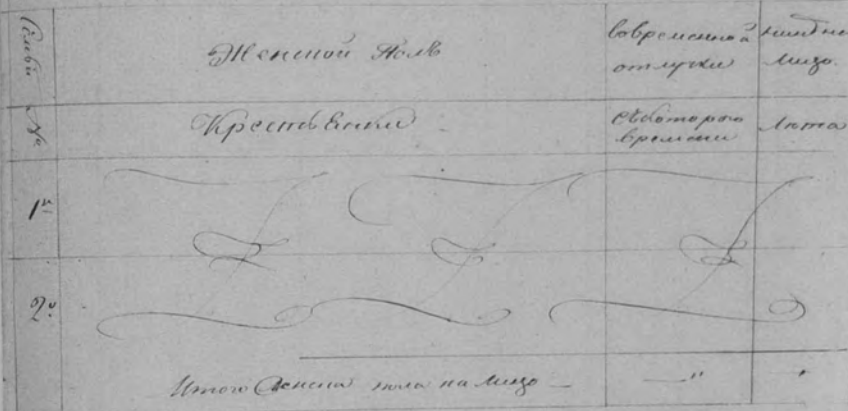 Семьи №
Женской Полъ
Во временной
отлучке
Ныне на
лицо.
Крестьянки
Съ котораго
времени
Лета
1й
2й
Итого женска пола на лицо — — " "